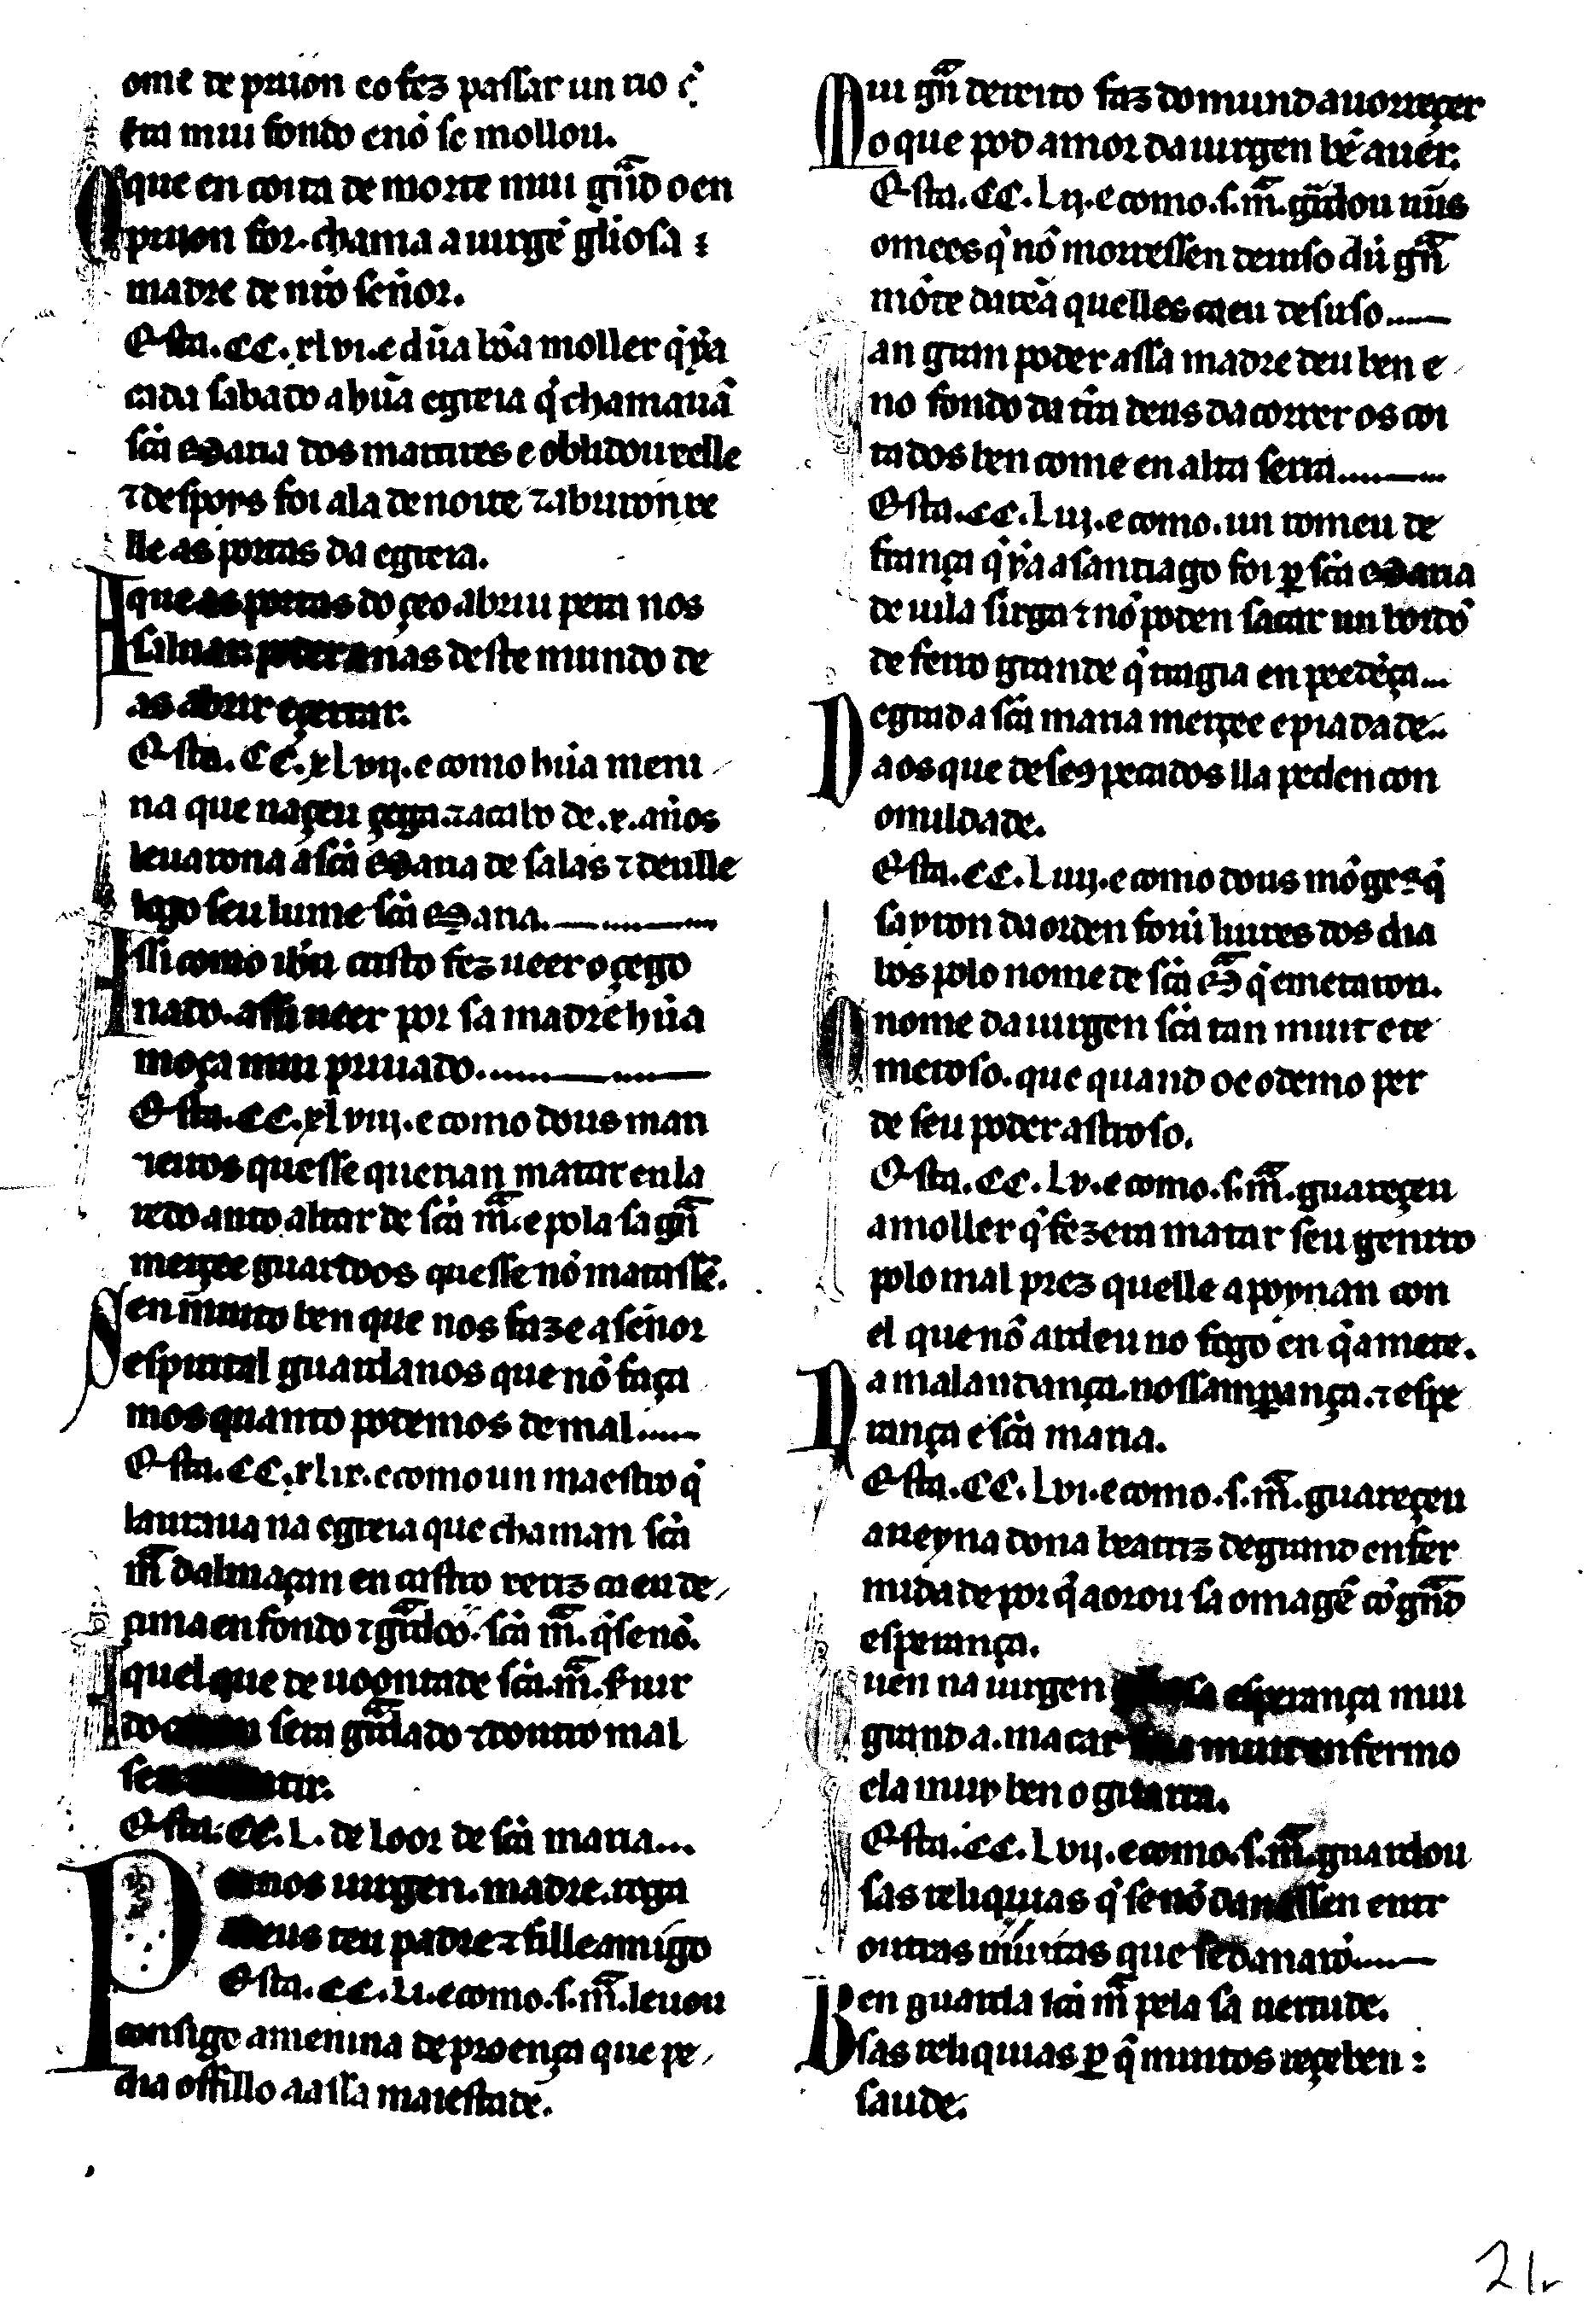 ome de prijon e o fez passar un rio q̇
era mui fondo e nõ se mollou.
O que en coita de morte mui gñd o en
prijon for. chama a uirgẽ gl̃iosa :
madre de nr̃o señor.
Esta. CC. xlvi. e dũa bõa moller q̇ ẏa
cada sabado a hũa egreia q̇ chamauã
sc̃a Maria dos martires e oblidouxelle
⁊ despois foi ala de noite ⁊ abriron xe
lle as portas da egreia.
A que as portas do çeo abriu pera nos
saluar poder a nas deste mundo de
as abrir e çerrar.
Esta. CC. xlvij. e como hũa meni
na que naçeu çega. ⁊ a cabo de. x. anos
leuarona a sc̃a Maria de salas ⁊ deulle
logo seu lume sc̃a Maria.
Assi como ih̃u cristo fez ueer o çego
nado. assi ueer por sa madre hũa
moça mui priuado.
Esta. CC. xlviij. e como dous mari
neiros que sse querian matar en la
redo ant o altar de sc̃a m̃. e pola sa gñ
merçee guardoos que sse nõ matassẽ.
Sen muito ben que nos faze a señor
esperital guardanos que nõ faça
mos quanto podemos de mal
Esta. CC. xlix. e como un maestro q̇
lauraua na egreia que chaman sc̃a
m̃ dalmaçan en castro xeriz caeu de
çima en fondo ⁊ gũdóó. sc̃a m̃. q̇ se nõ.
Aquel que de uoontade sc̃a. m̃. seruir
do sera gũdado ⁊ doutro mal
Esta. CC. L. de loor de sc̃a maria
P nos uirgen. madre. roga
deus teu padre ⁊ fille amigo
Esta. CC. Li. e como. s. m̃. leuou
consigo a menina de proença que pe
dia o ffillo aa ssa maiestade.
Mui gñ dereito faz do mund auorreçer
o que pod amor da uirgen bẽ auer.
Esta. CC. Lij. e como. s. m̃. gũdou ũus
omees q̇ nõ morressen de iuso dũ gñ
mõte darea q̇ elles caeu de suso
Tan gran poder a ssa madre deu ben e
no fondo da tr̃a deus dacorrer os coi
tados ben come en alta serra
Esta. CC. Liij. e como. un romeu de
frança q̇ ẏa a santiago foi ꝑ sc̃a Maria
de uila sirga ⁊ nõ poden sacar un bordõ
de ferro grande q̇ tragia en peedẽça
De grad a sc̃a maria merçee e piadade
aos que de seus pecados lla peden con
omildade.
Esta. CC. Liiij. e como dous mõges q̇
sayron da orden forũ liures dos dia
bos polo nome de sc̃a M̃ q̇ emetaron.
O nome da uirgen sc̃a tan muit e te
meroso. que quand o e o demo per
de seu poder astroso.
Esta. CC. Lv. e como. s. m̃. guareçeu
a moller q̇ fezera matar seu genrro
polo mal prez que lle apoynan con
el que nõ ardeu no fogo en q̇ a mete.
Na malandança. noss amꝑança. ⁊ espe
rança e sc̃a maria.
Esta. CC. Lvi. e como. s. m̃. guareçeu
a reyna dona beatriz de grand enfer
midade por q̇ aorou sa omagẽ cõ gñd
esperança.
Quen na uirgen sa esperança mui
grand a. macar muit enfermo
ela muy ben o guarra.
Esta. CC. Lvij. e como. s. m̃. guardou
sas reliquias q̇ se nõ danassen entr
outras muitas que se danarõ
Ben guarda sc̃a m̃ pela sa uertude.
sas reliquias ꝑ q̇ muitos reçeben :
saude.
21r